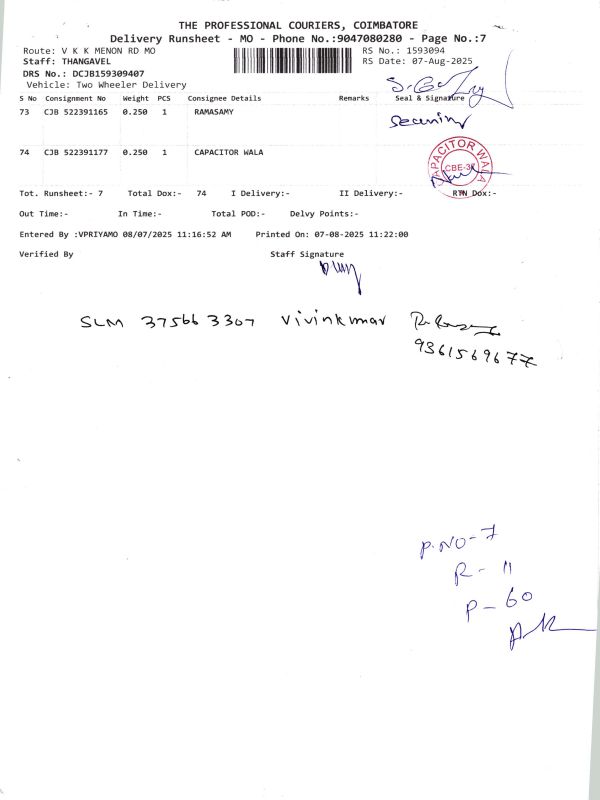 THE PROFESSIONAL COURIERS, COIMBATORE
Delivery Runsheet - MO - Phone No.:9047080280 - Page No.:7
Route: V K K MENON RD MO
RS No.: 1593094
Staff: THANGAVEL
RS Date: 07-Aug-2025
DRS No.: DCJB159309407
Vehicle: Two Wheeler Delivery
S No Consignment No Weight PCS Consignee Details Remarks Seal & Signature
73 CJB 522391165 0.250 1 RAMASAMY
Security
74 CJB 522391177 0.250 1 CAPACITOR WALA
CAPACITOR WALA
CBE-37
Tot. Runsheet:- 7 Total Dox:- 74 I Delivery:- II Delivery:- RTN Dox:-
Out Time:- In Time:- Total POD:- Delvy Points:-
Entered By :VPRIYAMO 08/07/2025 11:16:52 AM Printed On: 07-08-2025 11:22:00
Verified By Staff Signature
SLM 37566 3307 Vivinkumar
9361569677
P.NO-7
R - 11
P - 60